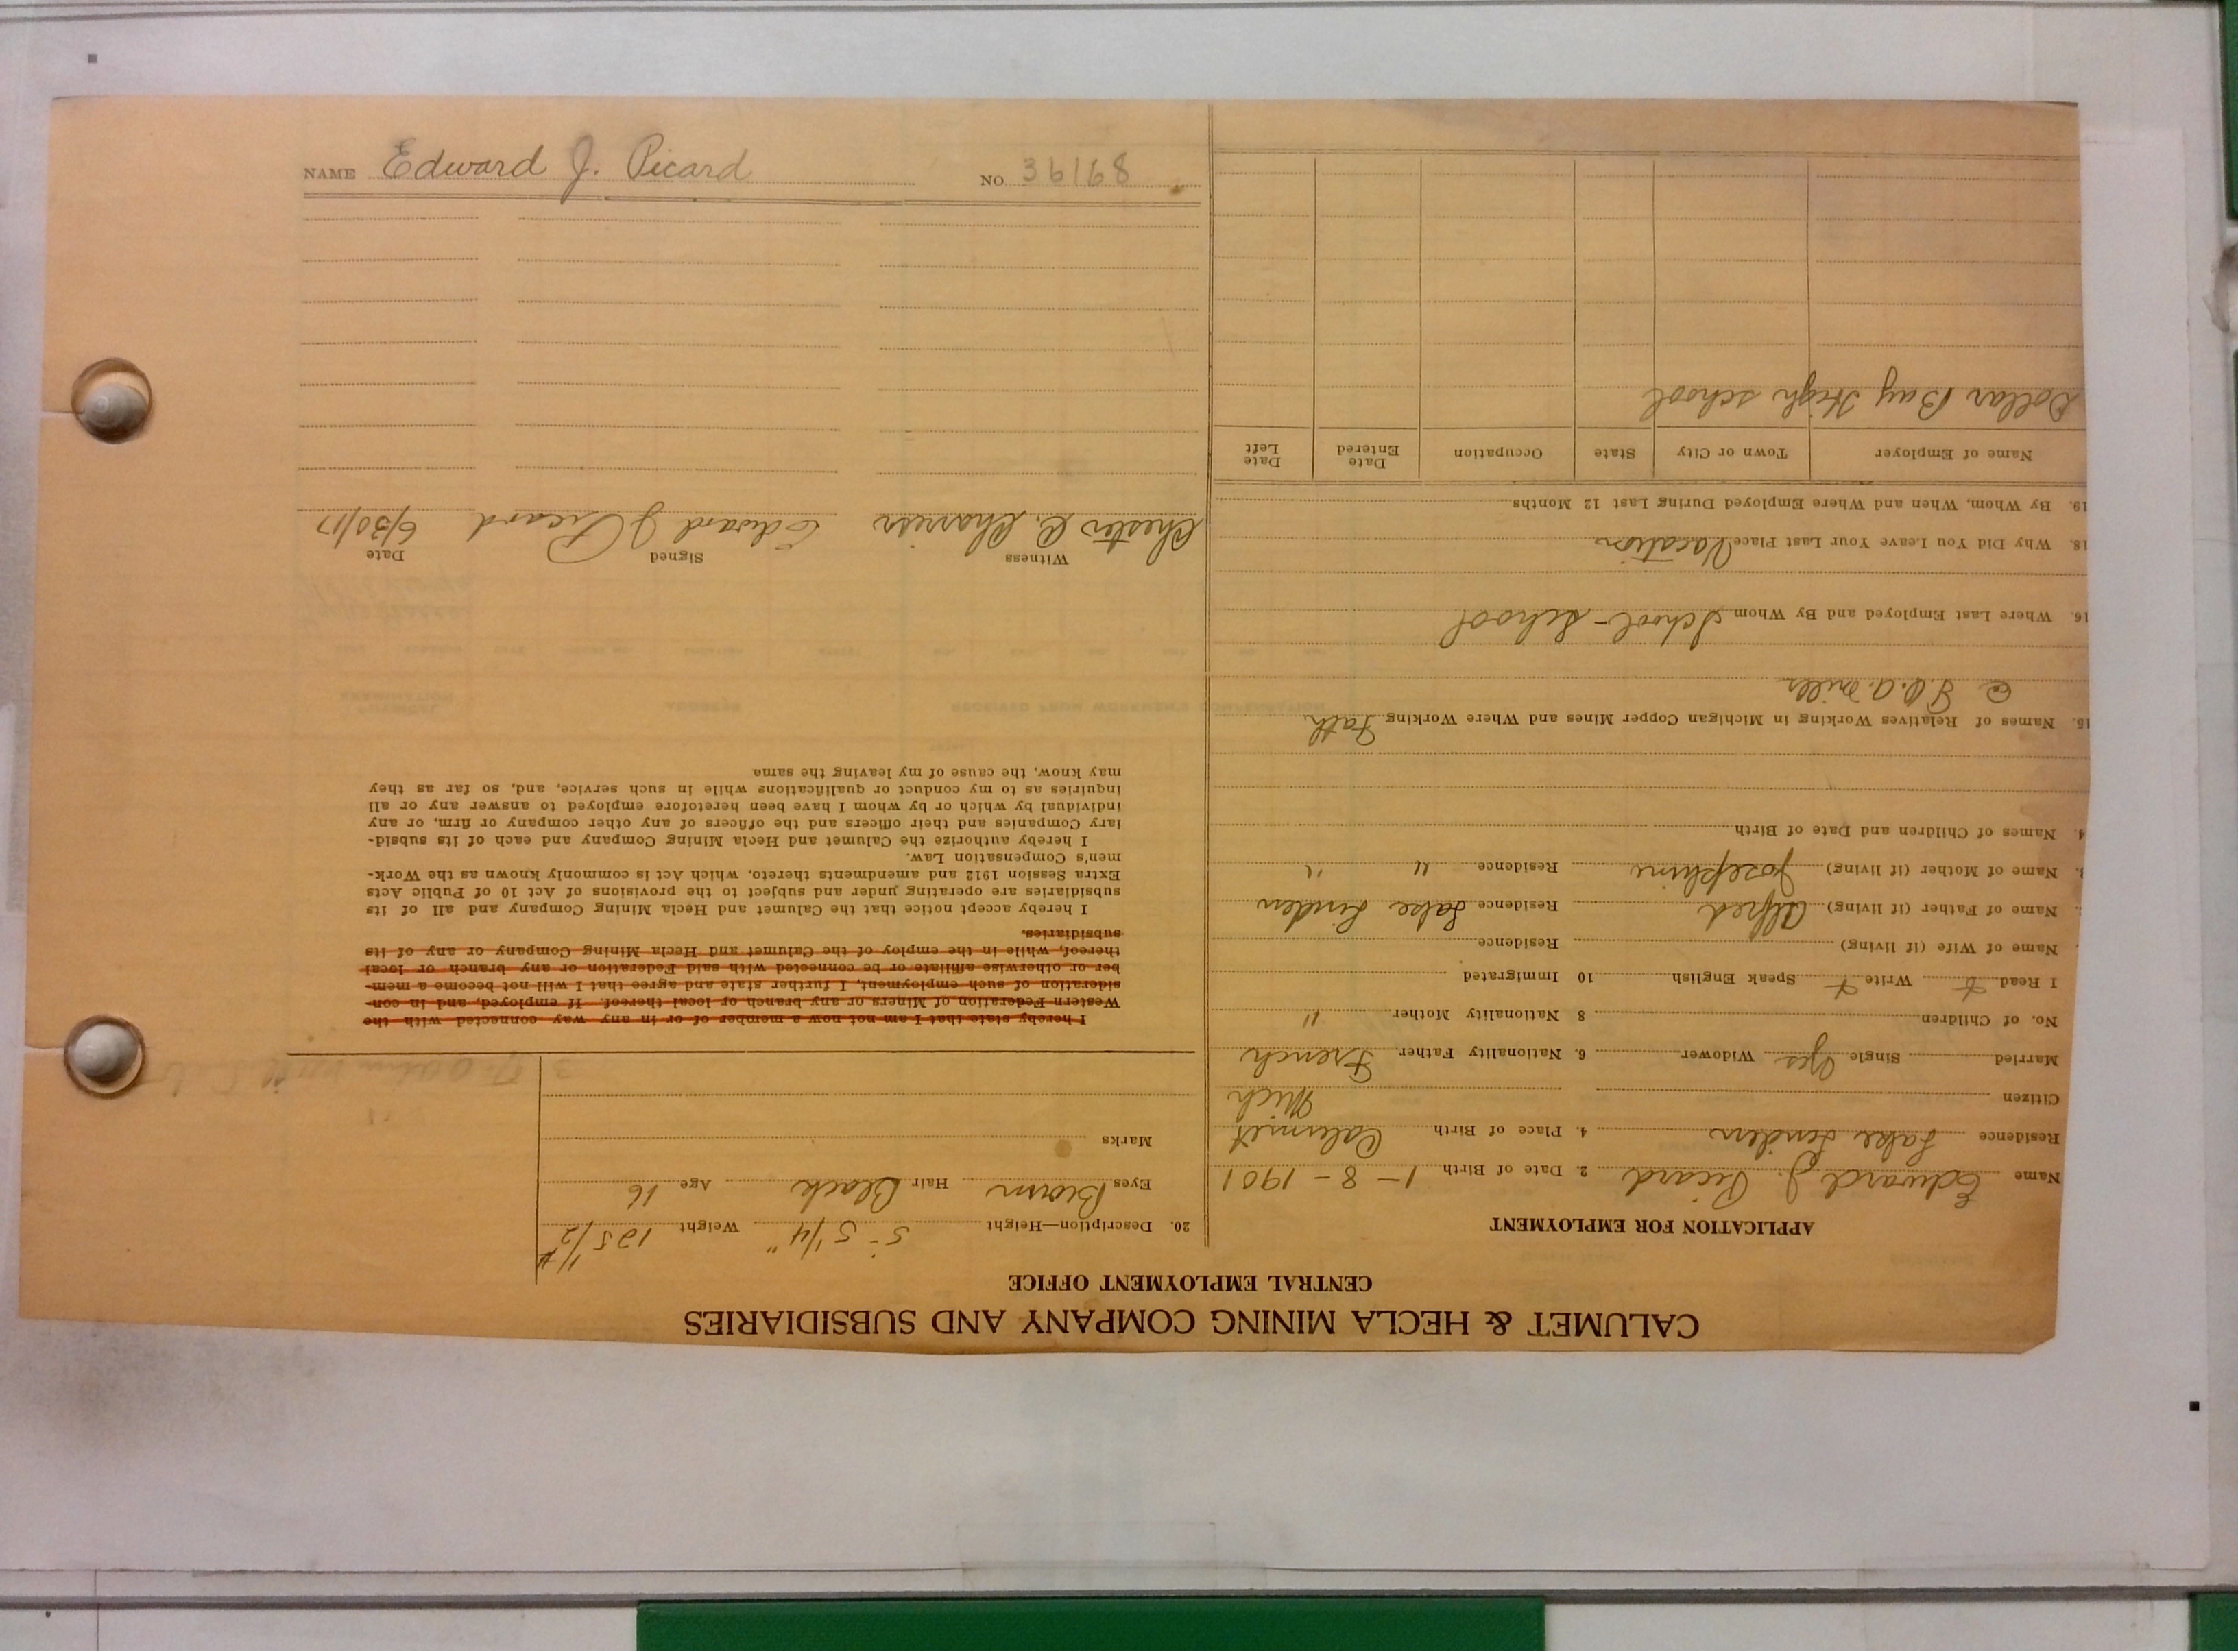 CALUMET & HECLA MINING COMPANY AND SUBSIDIARIES
CENTRAL EMPLOYMENT OFFICE
APPLICATION FOR EMPLOYMENT
Name Edward J. Picard 2. Date of Birth 1-8-1901
Residence Lake Linden 4. Place of Birth Calumet
Mich
Citizen
Married Single Yes Widower 6. Nationality Father French
No. of Children 8 Nationality Mother "
I Read Write Speak English 10 Immigrated
Name of Wife (if living) Residence
Name of Father (if living) Alfred Residence Lake Linden
3. Name of Mother (if living) Josephine Residence " "
4. Names of Children and Date of Birth
15. Names of Relatives Working in Michigan Copper Mines and Where Working Fath
Mills
16. Where Last Employed and By Whom School - School
18. Why Did You Leave Your Last Place Vacation
19. By Whom, When and Where Employed During Last 12 Months
Name of Employer Town or City State Occupation Date Entered Date Left
Dollar Bay High school
20. Description—Height 5'- 5 1/4" Weight 125 1/2 #
Eyes Brown Hair Black Age 16
Marks
I hereby state that I am not now a member of or in any way connected with the
Western Federation of Miners or any branch or local thereof. If employed, and in con-
sideration of such employment, I further state and agree that I will not become a mem-
ber or otherwise affiliate or be connected with said Federation or any branch or local
thereof, while in the employ of the Calumet and Hecla Mining Company or any of its
subsidiaries.
I hereby accept notice that the Calumet and Hecla Mining Company and all of its
subsidiaries are operating under and subject to the provisions of Act 10 of Public Acts
Extra Session 1912 and amendments thereto, which Act is commonly known as the Work-
men's Compensation Law.
I hereby authorize the Calumet and Hecla Mining Company and each of its subsid-
iary Companies and their officers and the officers of any other company or firm, or any
individual by which or by whom I have been heretofore employed to answer any or all
inquiries as to my conduct or qualifications while in such service, and, so far as they
may know, the cause of my leaving the same
Witness Signed Date
Chester Edward J Picard 6/30/17
NAME Edward J. Picard NO. 36168